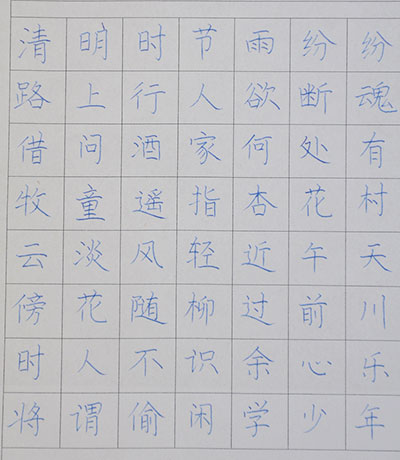 清明时节雨纷纷
路上行人欲断魂
借问酒家何处有
牧童遥指杏花村
云淡风轻近午天
傍花随柳过前川
时人不识余心乐
将谓偷闲学少年